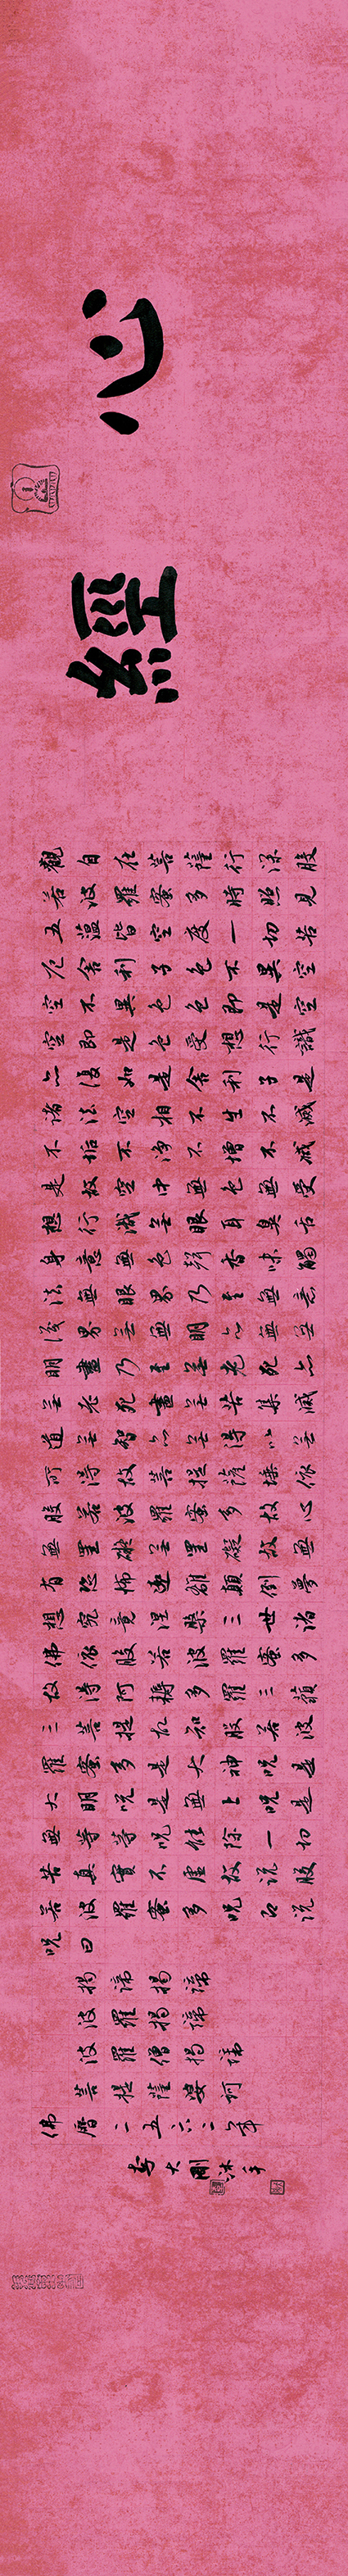 心經
觀自在菩薩行深般
若波羅蜜多時照見
五蘊皆空度一切苦
厄舍利子色不異空
空不異色色即是空
空即是色受想行識
亦復如是舍利子是
諸法空相不生不滅
不垢不淨不增不減
是故空中無色無受
想行識無眼耳鼻舌
身意無色聲香味觸
法無眼界乃至無意
識界無無明亦無無
明盡乃至無老死亦
無老死盡無苦集滅
道無智亦無得以無
所得故菩提薩埵依
般若波羅蜜多故心
無罣礙無罣礙故無
有恐怖遠離顛倒夢
想究竟涅槃三世諸
佛依般若波羅蜜多
故得阿耨多羅三藐
三菩提故知般若波
羅蜜多是大神咒是
大明咒是無上咒是
無等等咒能除一切
苦真實不虛故說般
若波羅蜜多咒即說
咒曰
揭諦揭諦
波羅揭諦
波羅僧揭諦
菩提薩婆訶
佛曆二五六二年
李大剛沐手